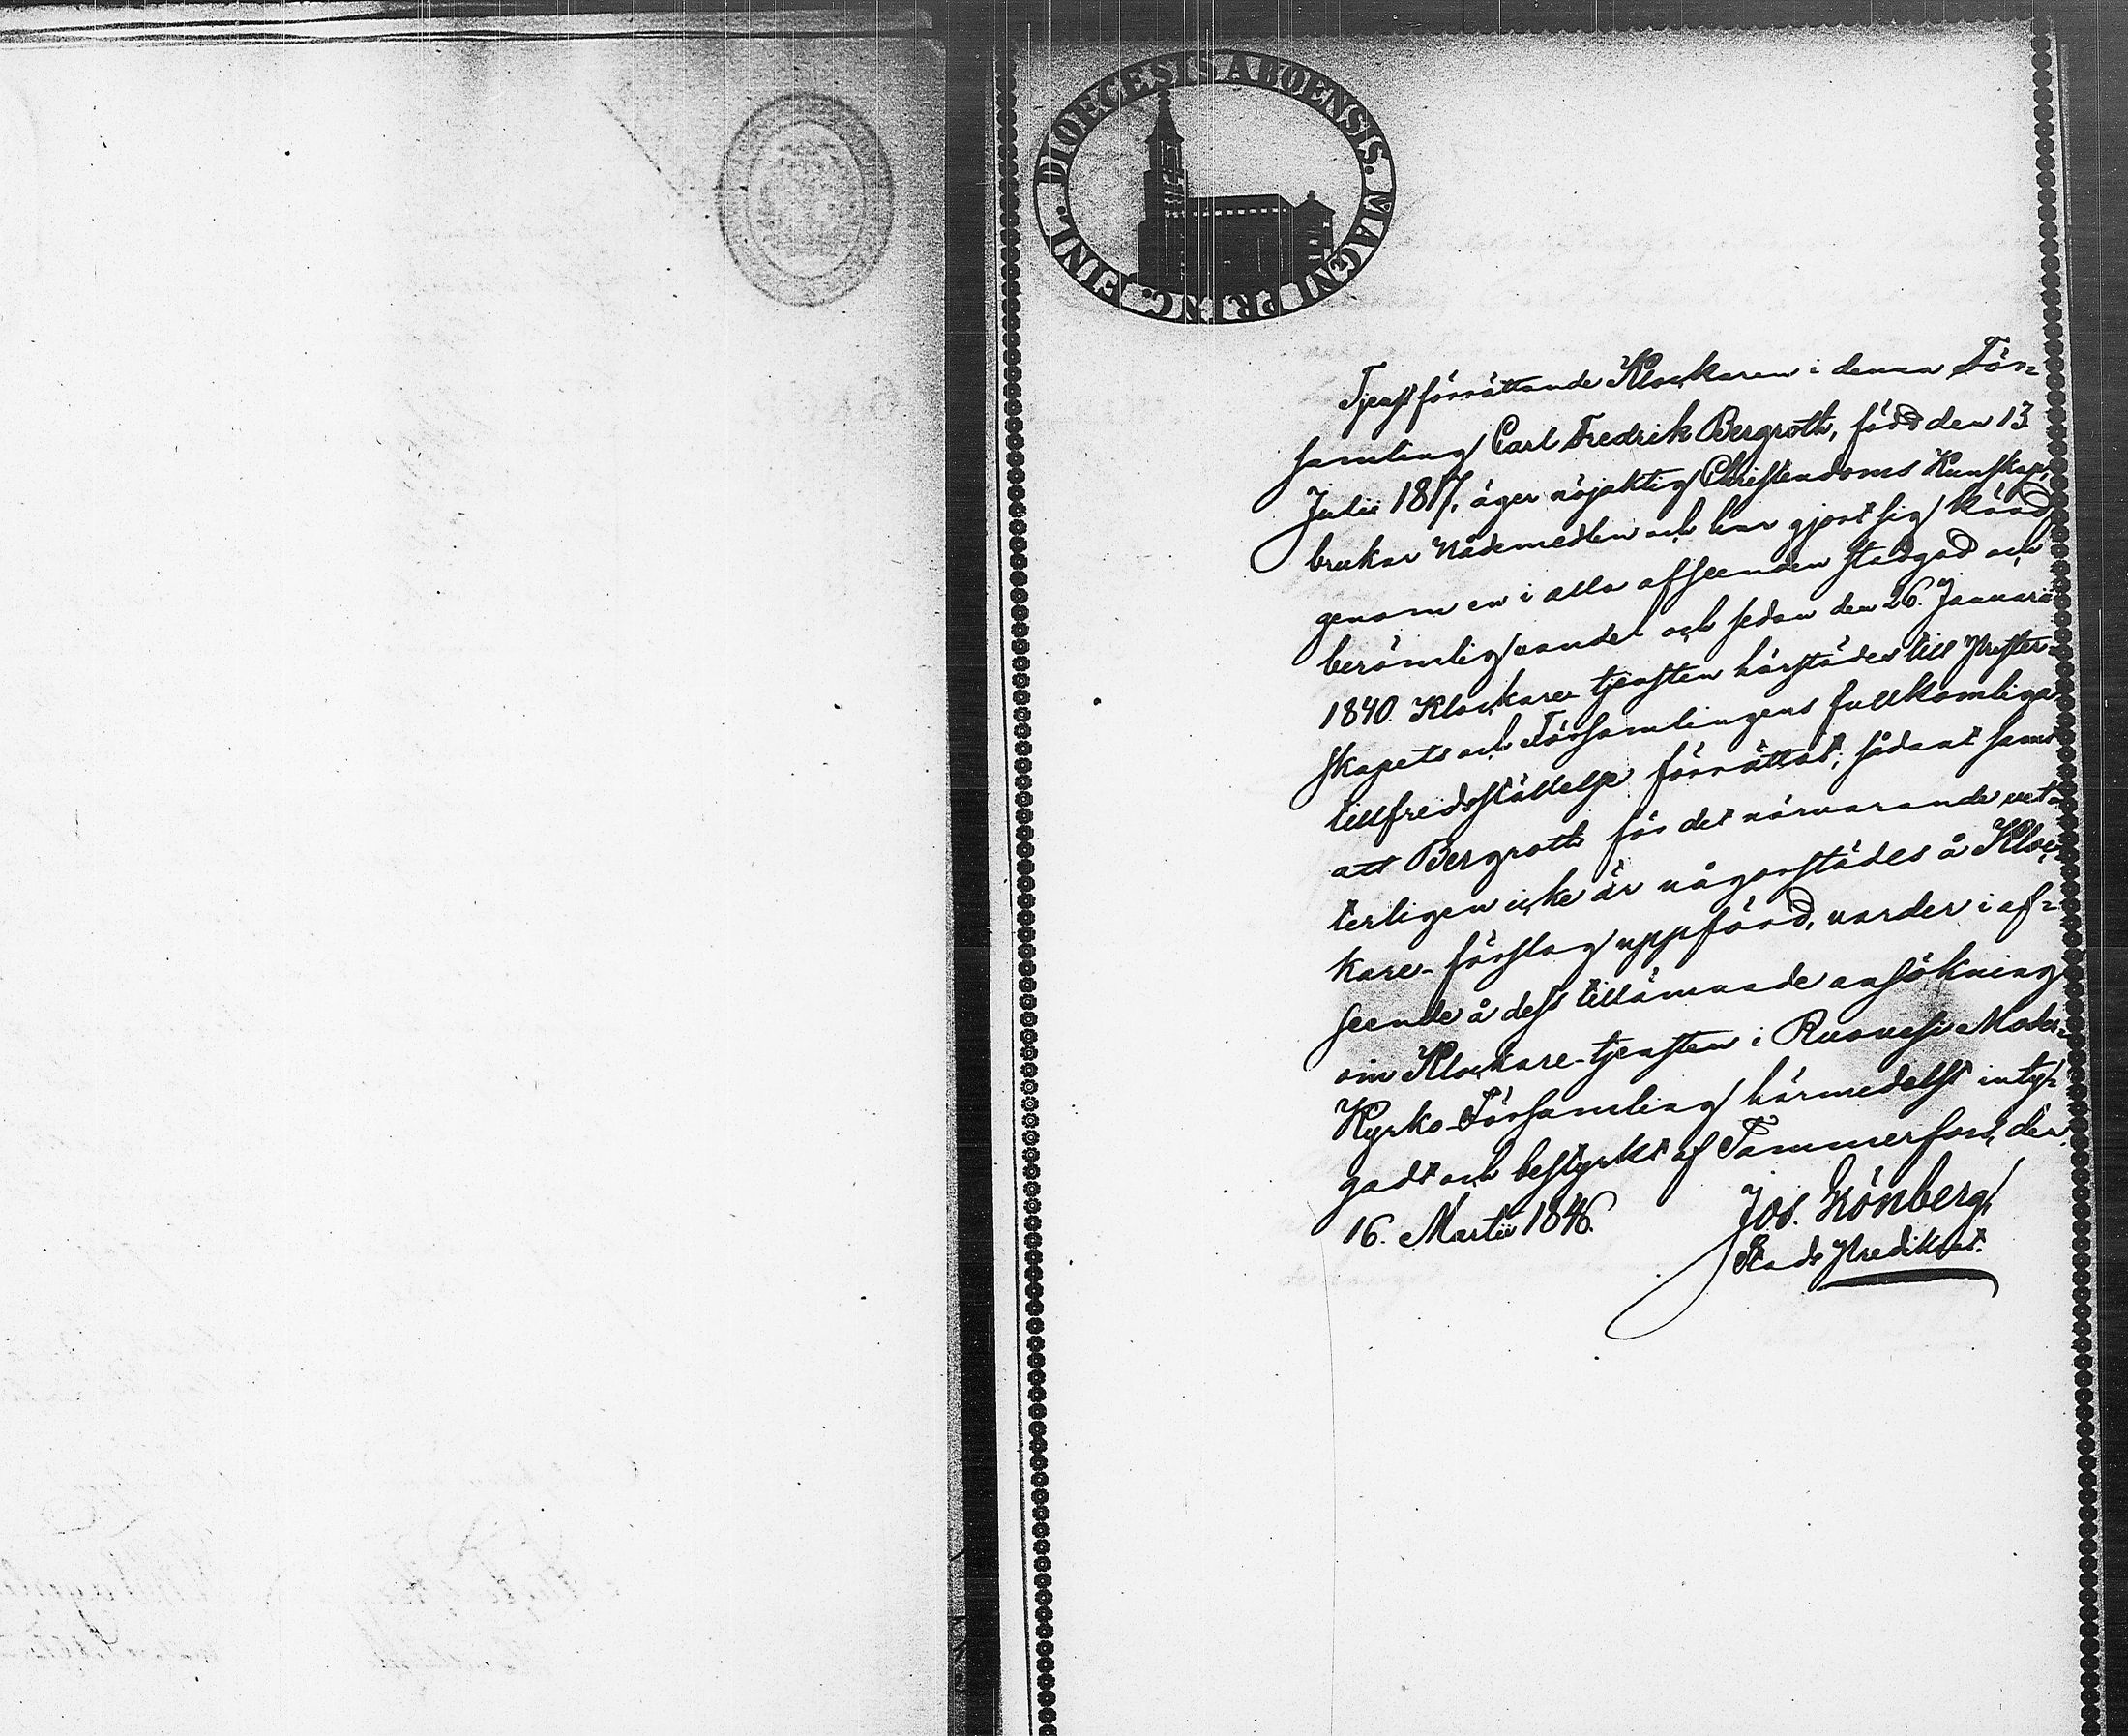 DIOECESIS ABOENSIS. MAGNI PRINC. FINL.
Tjenstförrättande Klockaren i denna För=
samling Carl Fredrik Bergroth, född den 13
Julii 1817, äger nöjaktig Christendoms Kunskap,
brukar Nådemedlen och har gjort sig känd
genom en i alla afseenden stadgad och
berömlig vandel och sedan den 26. Januarii
1840. Klockare tjensten härstädes till Prester
skapets och Församlingens fullkomliga
tillfredsställelse förrättat; sådant samt
att Bergroth för det närvarande vet=
terligen icke är någorstädes å Kloc=
kare-förslag uppförd, varder i af=
seende å dess tillämnade ansökning
om Klockare-tjensten i Ruovesi Moder=
Kyrko-Församling härmedelst intyg=
gadt och bestyrkt af Tammerfors, den
16. Martii 1846.
Jos. Grönberg
Stads Predikant.